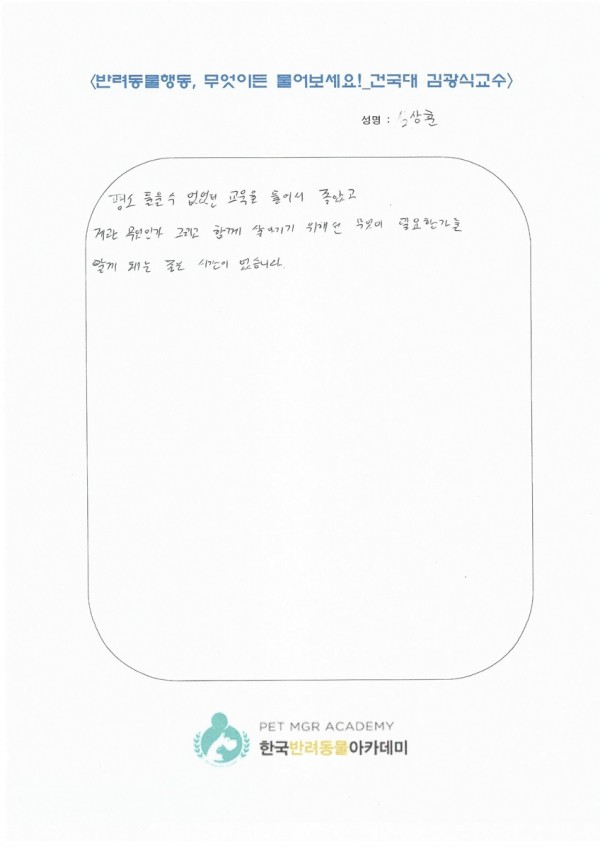 <반려동물행동, 무엇이든 물어보세요!_건국대 김광식교수>
성명 : 상훈
평소 들을수 없었던 교육을 들어서 좋았고
무엇인가 그리고 함께 살아가기 위해선 무엇이 필요한가를
알게 돼는 좋은 시간이 었습니다.
PET MGR ACADEMY
한국반려동물아카데미